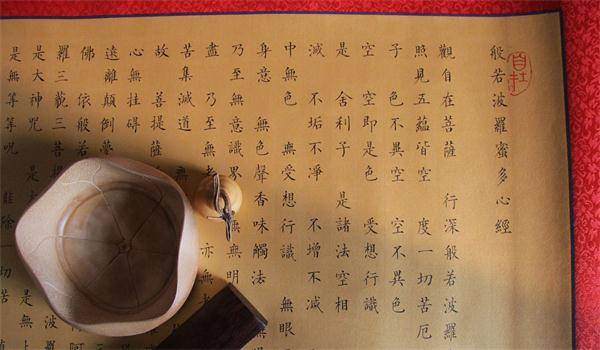 般若波羅蜜多心經
觀自在菩薩 行深般若波羅
照見五蘊皆空 度一切苦厄
子 色不異空 空不異色
空 空即是色 受想行識
是 舍利子 是諸法空相
滅 不垢不淨 不增不減
中無色 無受想行識 無眼
身意 無色聲香味觸法
乃至無意識界 無無明
盡 乃至無老 亦無老
苦集滅道 無
故 菩提薩
心無挂礙
遠離顛倒夢
佛 依般若 阿
羅三藐三菩提
是大神咒 是大 是無上
是無等等呪 能除一切苦